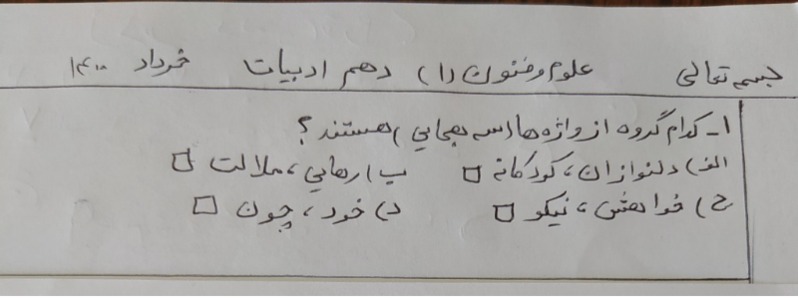 بسمه تعالی علوم و فنون (۱) دهم ادبیات خرداد ۱۴۰۰
۱- کدام گروه از واژه ها، سه هجایی هستند؟
الف) دلنوازان، کودکانه □ ب) رهایی، ملالت □
ج) خواهش، نیکو □ د) خود، چون □